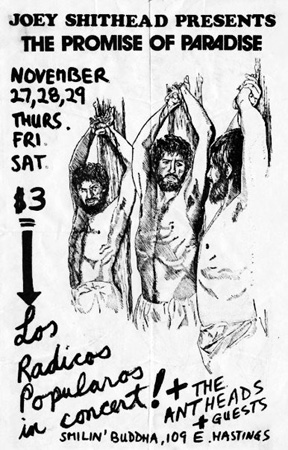 JOEY SHITHEAD PRESENTS
THE PROMISE OF PARADISE
NOVEMBER
27,28,29
THURS.
FRI.
SAT.
$3
Los
Radicos
Popularos
in concert!
+ THE
ANTHEADS
+ GUESTS
SMILIN' BUDDHA, 109 E. HASTINGS